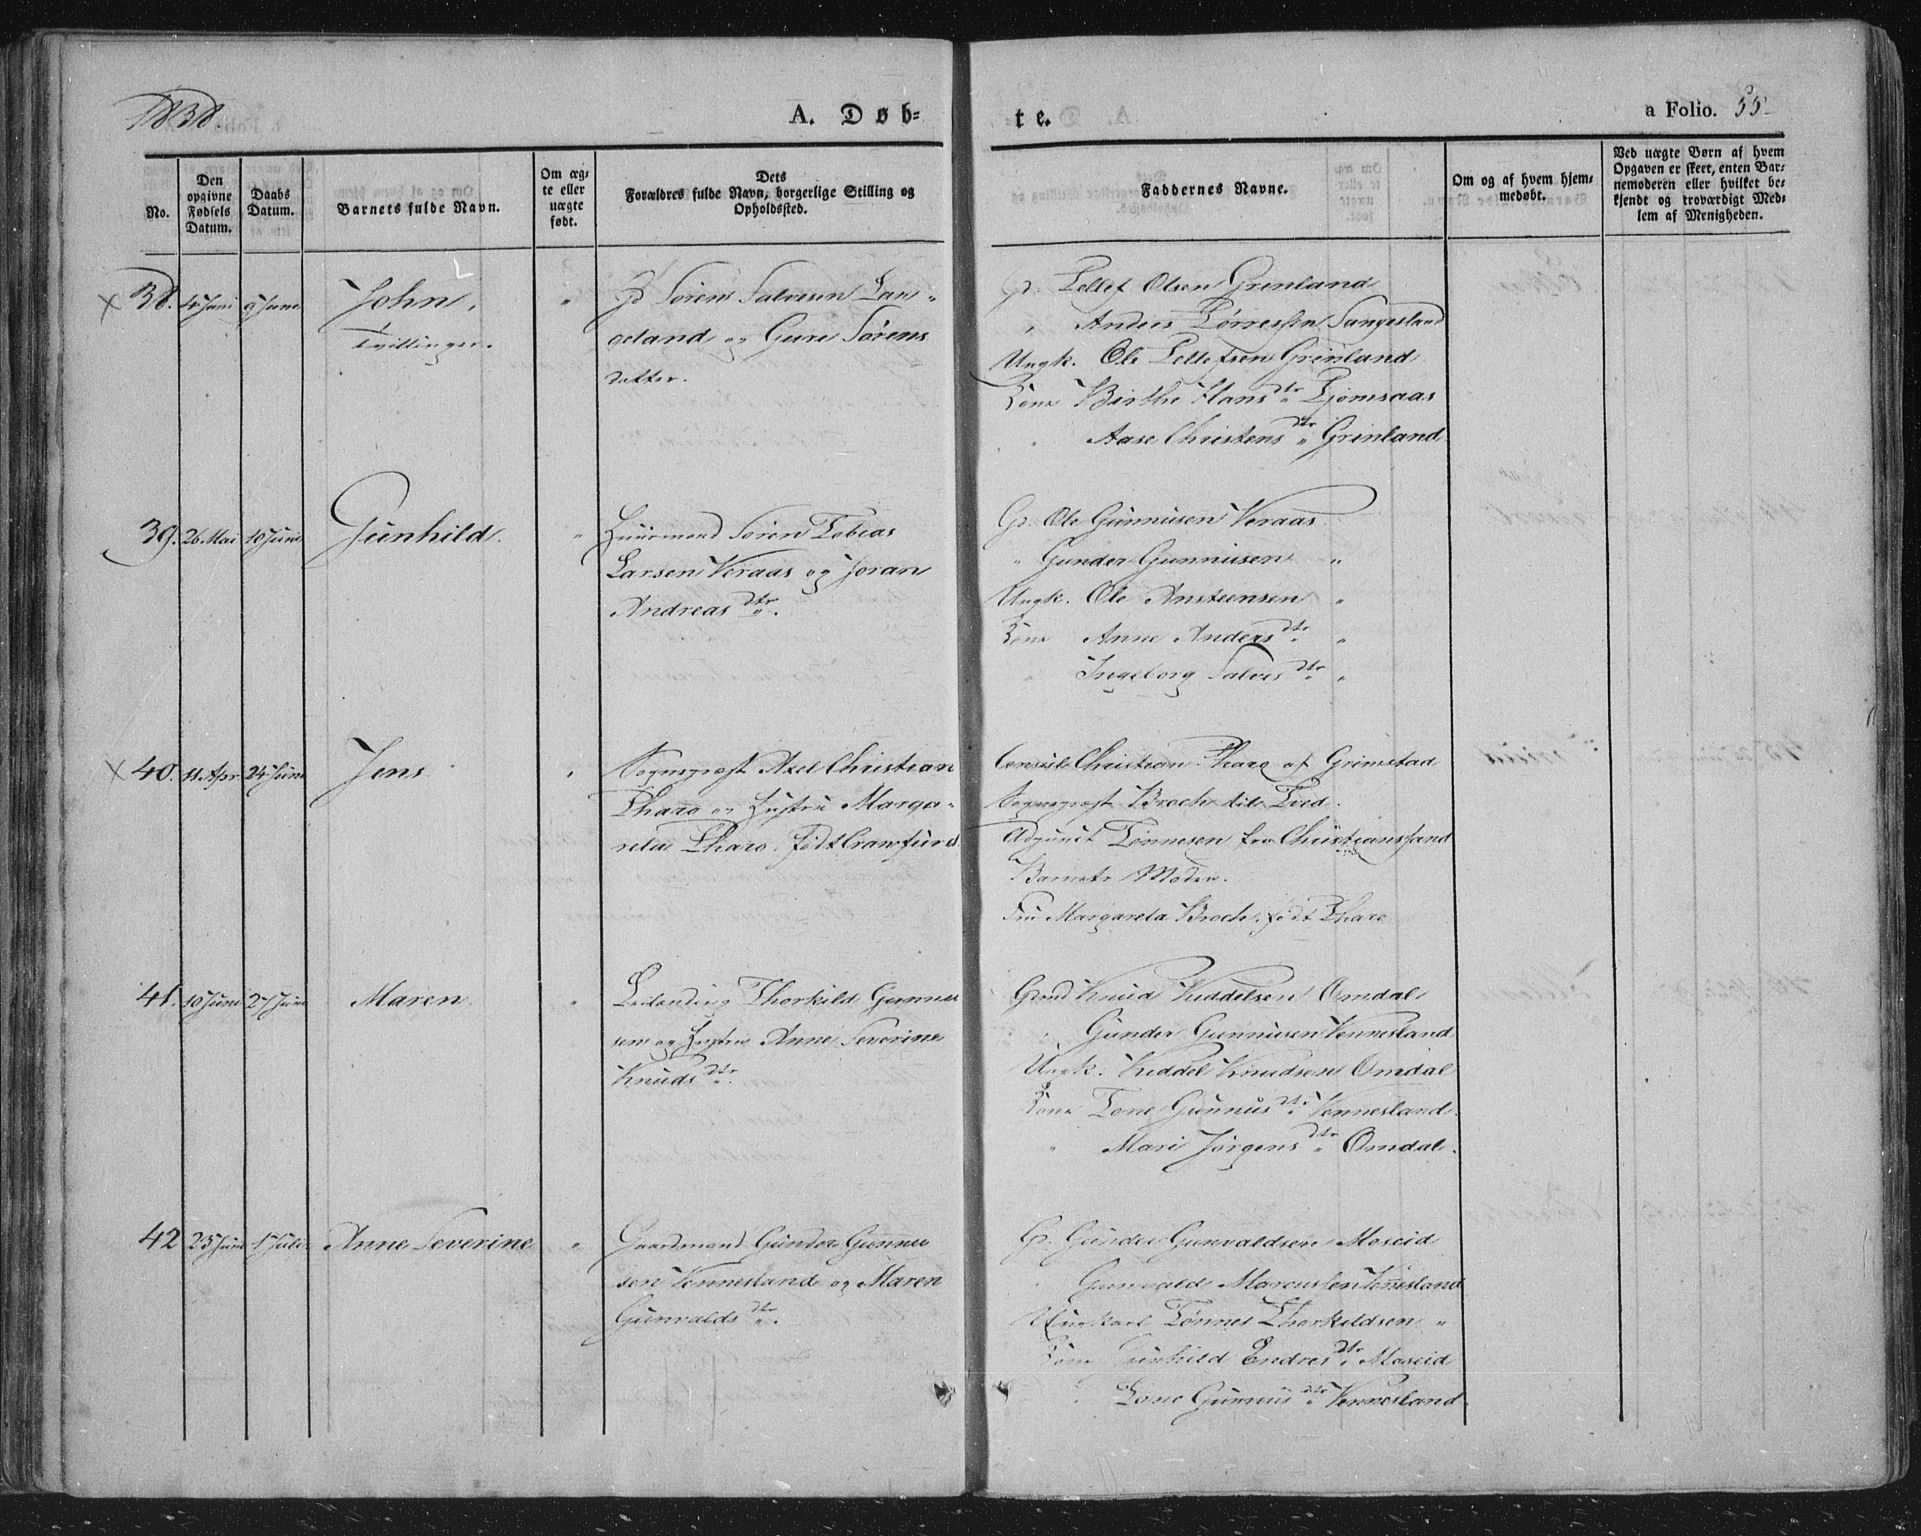 1838.
A. Døb-
te.
a Folio. 55
No.
Den opgivne Fødsels Datum.
Daabs Datum.
Barnets fulde Navn.
Om ægte eller uægte født.
Dets
Forældres fulde Navn, borgerlige Stilling og
Opholdssted.
Faddernes Navne.
Om og af hvem hjemmedøbt.
Ved uægte Børn af hvem
Opgaven er skeet, enten Bar-
nemoderen eller hvilket be-
kjendt og troværdigt Med-
lem af Menigheden.
38. 4 Juni 9 Juni John,
Tvillinger.
Gd Søren Salvesen Lan-
geland og Gure Sørens
datter.
Gd. Tellef Olsen Grinland
" Anders Tørressen Langesland
Ungk. Ole Tellefsen Grinland
Kone Birthe Hans dtr. Tjomsaas
" Aase Christens dtr. Grinland
39. 26 Mai 10 Juni Gunhild.
Huusmand Søren Tobias
Larsen Veraas og Joran
Andreas dtr.
Gd. Ole Gunnusen Veraas
" Gunder Gunnusen "
Ungk. Ole Ansteensen "
Kone Anne Anders dtr. "
" Ingeborg Salves dtr. "
40. 11 Apr 24 Juni Jens
Sognepræst Axel Christian
Pharo og Hustru Marga-
reta Pharo, født Crawfurd.
Consul Christian Pharo af Grimstad
Sognepræst Broch til Tved.
Adjunct Tønnesen fra Christianssand
Barnets Moder.
Fru Margareta Broch, født Pharo
41. 10 Juni 24 Juni Maren
Leilænding Thorkild Gunnu
sen og Hustru Anne Severine
Knuds dtr.
Grmd Knud Kiddelsen Omdal
" Gunder Gunnusen Vennesland
Ungk. Kiddel Knudsen Omdal
Kone Tone Gunnus dtr. Vennesland
" Mari Jørgens dtr. Omdal.
42 25 Juni 1 Juli Anne Severine "
Gaardmand Gunder Gunnu
sen Vennesland og Maren
Gunvalds dtr.
Gd. Gunder Gunvaldsen Moseid
" Gunvald Marcussen Vennesland
Ungkarl Tønnes Thorkildsen "
Kone Gunhild Endres dtr. Moseid
" Tone Gunnus dtr. Vennesland